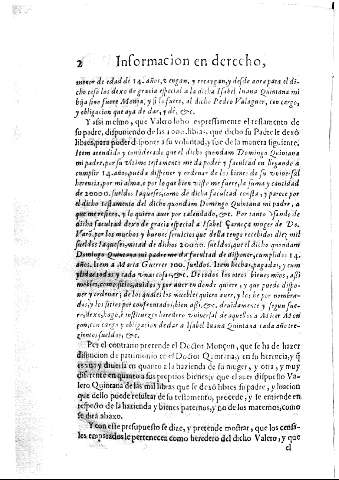 2 Informacion en derecho,
menor de edad de 14. años, vengan, y recaygan, y desde aora para el di-
cho caso las dexo de gracia especial a la dicha Isabel Iuana Quintana mi
hija sino fuere Monja, y si lo fuere, al dicho Pedro Valaguer, con cargo,
y obligacion que aya de dar, y dè, &c.
Y assi mesmo, que Valero hizo expressamente el testamento de
su padre, disponiendo de las 1000. libras, que dicho su Padre le dexò
libres, para poder disponer a su voluntad, y fue de la manera siguiente,
Item atendido y considerado que el dicho quondam Domingo Quintana
mi padre, por su vltimo testamento me da poder y facultad en llegando a
cumplir 14. años, pueda disponer y ordenar de los bienes de su vniuersal
herencia, por mi alma, o por lo que bien visto me fuere, la suma y cantidad
de 20000. sueldos Iaqueses, como de dicha facultad consta, y parece por
el dicho testamento del dicho quondam Domingo Quintana mi padre, a
que me refiero, y lo quiero auer por calendado, &c. Por tanto vsando de
dicha facultad dexo de gracia especial a Isabel muger de
por los muchos y buenos seruicios que della tengo recebidos diez mil
sueldos Iaqueses, mitad de dichos 20000. sueldos, que el dicho quondam
Domingo Quintana mi padre me da facultad de disponer, cumplidos 14.
años. Item a Maria Guerra 100. sueldos. Item hechas, pagadas, y cum
plidas todas y cada vna cosas, &c. De todos los otros bienes mios, assi
mobles, como sitios, auidos y por auer en donde quiere, y que puedo dispo-
ner y ordenar; de los quales los muebles quiero auer, y los he por nombra-
dos; y los sitios por confrontados, bien assi, deuidamente y segun fue-
ro, dexo, hago, è instituezco heredero vniuersal de aquellos a Micer Mon
çon, con cargo y obligacion de dar a Isabel Iuana Quintana cada año tre-
zientos sueldos, &c.
Por el contrario pretende el Doctor Monçon, que se ha de hazer
distincion de patrimonio en el Doctor Quintana, y en su herencia, y q̃
es vna y diuersa en quanto a la hazienda de su muger, y otra, y muy
diferente en quanto a sus propios bienes; y que el auer dispuesto Va-
lero Quintana de las mil libras que se dexò libres su padre, y loacion
que dello puede resultar de su testamento, procede, y se entiende en
respecto de la hazienda y bienes paternos, y no de los maternos, como
se dirà abaxo.
Y con este presupuesto se dize, y pretende mostrar, que los censa-
les empeñados le pertenecen como heredero del dicho Valero, y que
el